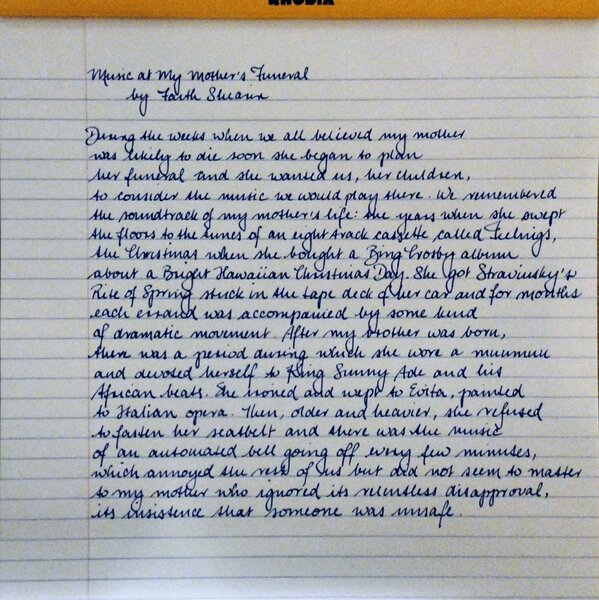 RHODIA
Music at My Mother's Funeral
by Faith Shearin
During the weeks when we all believed my mother
was likely to die soon she began to plan
her funeral and she wanted us, her children,
to consider the music we would play there. We remembered
the soundtrack of my mother's life: the years when she swept
the floors to the tunes of an eight track cassette called Feelings,
the Christmas when she bought a Bing Crosby album
about a Bright Hawaiian Christmas Day. She got Stravinsky's
Rite of Spring stuck in the tape deck of her car and for months
each errand was accompanied by some kind
of dramatic movement. After my brother was born,
there was a period during which she wore a muumuu
and devoted herself to King Sunny Ade and his
African beats. She ironed and wept to Evita, painted
to Italian opera. Then, older and heavier, she refused
to fasten her seatbelt and there was the music
of an automated bell going off every few minutes,
which annoyed the rest of us but did not seem to matter
to my mother who ignored its relentless disapproval,
its insistence that someone was unsafe.